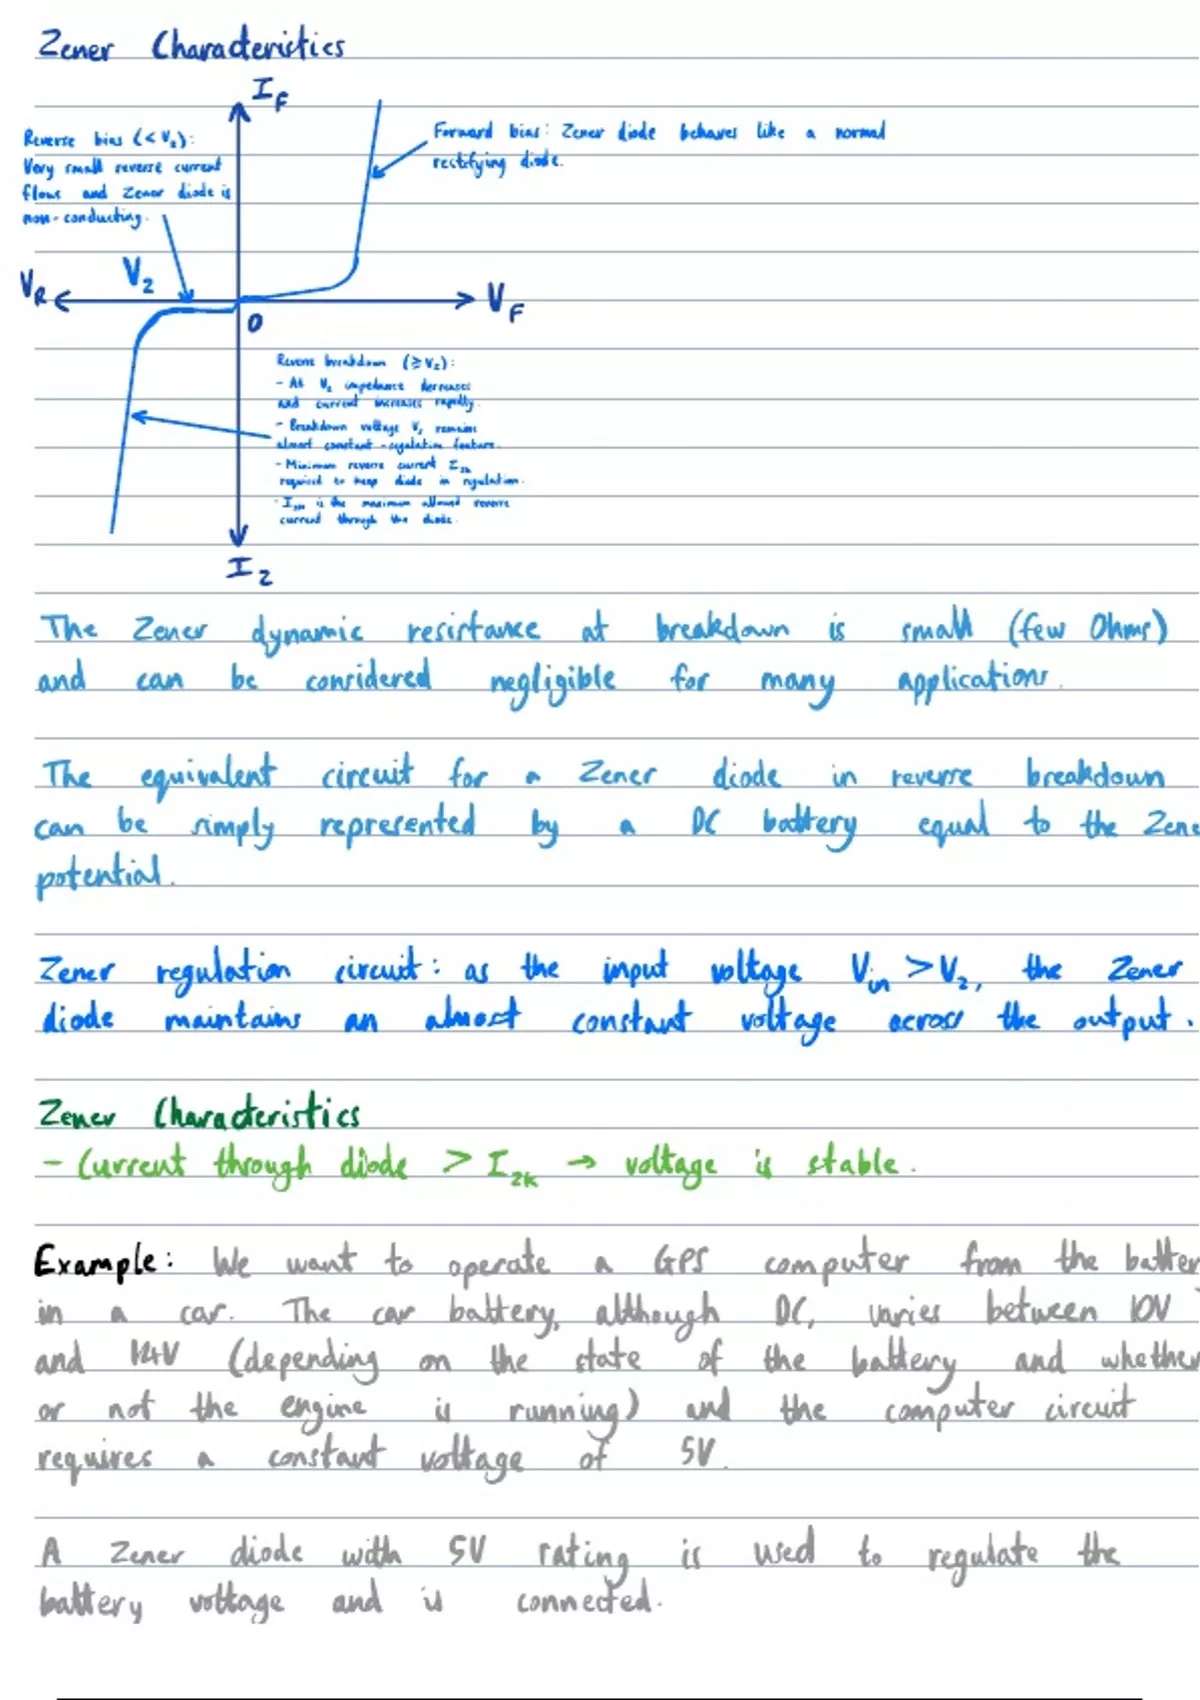 Zener Characteristics
I_F
Reverse bias (< V_Z):
Very small reverse current
flows and Zener diode is
non-conducting.
Forward bias: Zener diode behaves like a normal
rectifying diode.
V_Z
V_R
V_F
0
Reverse breakdown (≥ V_Z):
- At V_Z impedance decreases
and current increases rapidly.
- Breakdown voltage V_Z remains
almost constant - regulation feature.
- Minimum reverse current I_Zk
required to keep diode in regulation.
- I_Zm is the maximum allowed reverse
current through the diode.
I_Z
The Zener dynamic resistance at breakdown is small (few Ohms)
and can be considered negligible for many applications.
The equivalent circuit for a Zener diode in reverse breakdown
can be simply represented by a DC battery equal to the Zene
potential.
Zener regulation circuit: as the input voltage V_in > V_Z, the Zener
diode maintains an almost constant voltage across the output.
Zener Characteristics
- Current through diode > I_ZK → voltage is stable.
Example: We want to operate a GPS computer from the batter
in a car. The car battery, although DC, varies between 10V
and 14V (depending on the state of the battery and whether
or not the engine is running) and the computer circuit
requires a constant voltage of 5V.
A Zener diode with 5V rating is used to regulate the
battery voltage and is connected.